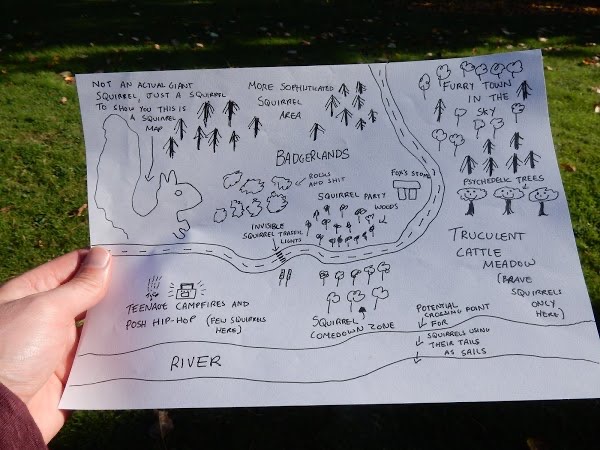 NOT AN ACTUAL GIANT
SQUIRREL, JUST A SQUIRREL
TO SHOW YOU THIS IS
A SQUIRREL
MAP
MORE SOPHISTICATED
SQUIRREL
AREA
FURRY TOWN
IN THE
SKY
BADGERLANDS
ROCKS
AND SHIT
FOX'S STONE
PSYCHEDELIC TREES
SQUIRREL PARTY
WOODS
INVISIBLE
SQUIRREL TRAFFIC
LIGHTS
TRUCULENT
CATTLE
MEADOW
(BRAVE
SQUIRRELS
ONLY
HERE)
TEENAGE CAMPFIRES AND
POSH HIP-HOP (FEW SQUIRRELS
HERE)
SQUIRREL
COMEDOWN ZONE
POTENTIAL
CROSSING POINT
FOR
SQUIRRELS USING
THEIR TAILS
AS SAILS
RIVER